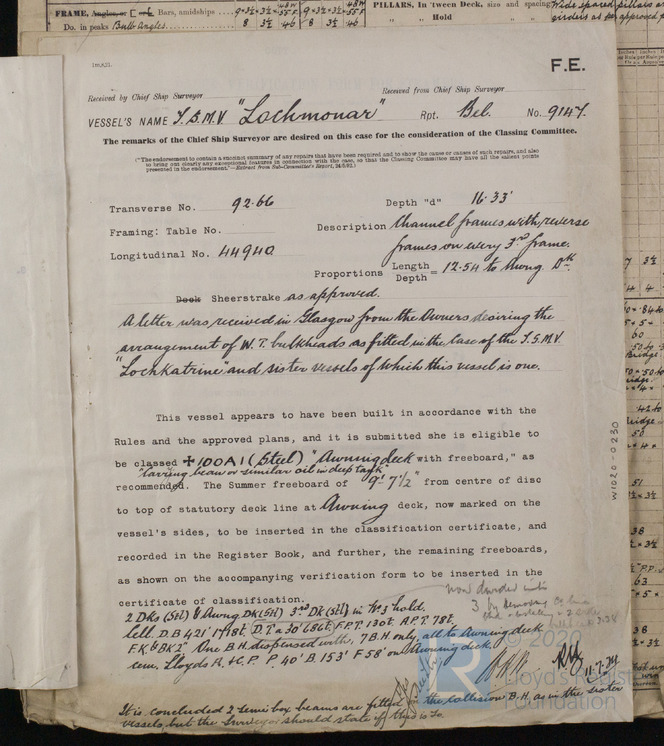 FRAME, Angles, or [ or L Bars, amidships
Do. in peaks Bulb Angles
8 3½ 46 8 3½ 46
PILLARS, In 'tween Deck, size and spacing Wide spaced pillars
" Hold girders as approved
F.E.
Received by Chief Ship Surveyor
Received from Chief Ship Surveyor
VESSEL'S NAME T.S.M.V "Lochmonar" Rpt. Bel. No. 9147.
The remarks of the Chief Ship Surveyor are desired on this case for the consideration of the Classing Committee.
("The endorsement to contain a succinct summary of any repairs that have been required and to show the cause or causes of such repairs, and also
to bring out clearly any exceptional features in connection with the case, so that the Classing Committee may have all the salient points
presented in the endorsement."—Extract from Sub-Committee's Report, 24/5/92.)
Transverse No. 92.66
Depth "d" 16.33'
Framing: Table No.
Description Channel frames with reverse
frames on every 3rd frame.
Longitudinal No. 44940
Proportions Length/Depth = 12.54 to Awng. Dk.
Deck Sheerstrake as approved.
A letter was received in Glasgow from the Owners desiring the
arrangement of W.T. bulkheads as fitted in the case of the T.S.M.V
"Lochkatrine" and sister vessels of which this vessel is one.
This vessel appears to have been built in accordance with the
Rules and the approved plans, and it is submitted she is eligible to
be classed ✠100A1 (Steel) "Awning deck with freeboard," as
"carrying or similar oil in deep tank"
recommended. The Summer freeboard of 9' 7½" from centre of disc
to top of statutory deck line at Awning deck, now marked on the
vessel's sides, to be inserted in the classification certificate, and
recorded in the Register Book, and further, the remaining freeboards,
as shown on the accompanying verification form to be inserted in the
certificate of classification.
now divided into
3 by removing
2 Dks (Stl) & Awng Dk (Stl) 3rd Dk (Stl) in No 3 hold.
Cell. D.B 421' 1718t. D.T a 30' 686t. F.P.T. 130t. A.P.T. 78t.
F.K. & BK 2" One B.H. dispensed with, 7 B.H. only, all to Awning deck
cem. Lloyds A.&C.P. P 40' B.153' F 58' on Awning deck.
11.7.24
It is concluded 2 semi box beams are fitted in the collision B.H. as in the sister
vessels, but the Surveyor should state if this is so.
W1020-0230
© 2020
Lloyd's Register
Foundation